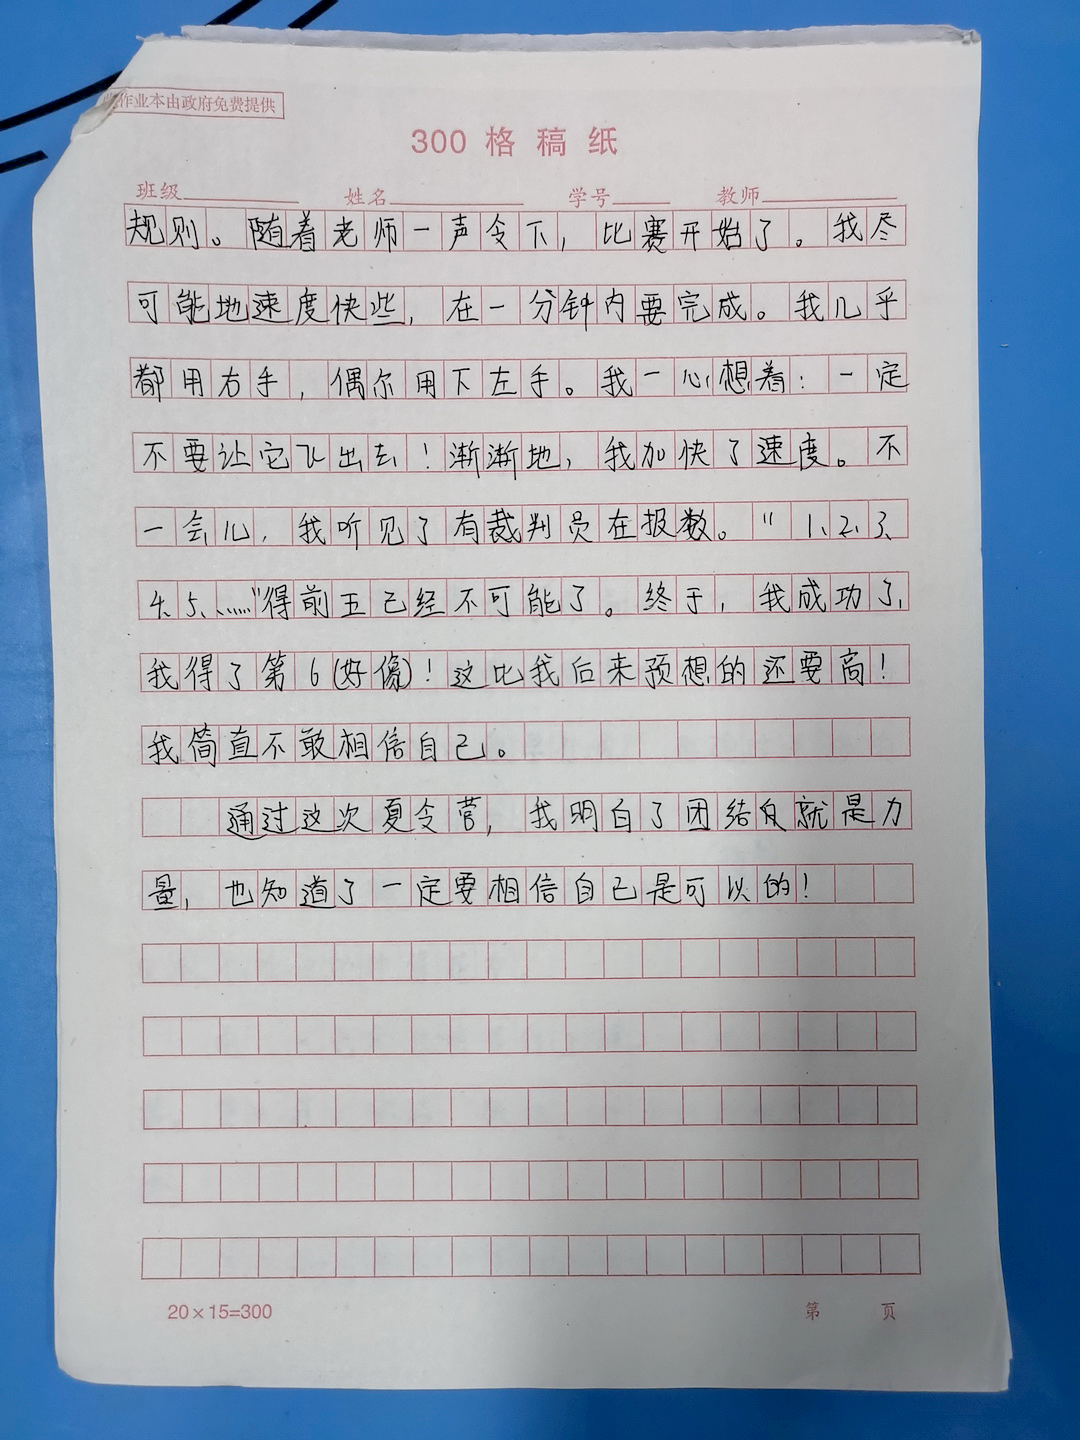 作业本由政府免费提供
300 格 稿 纸
班级 姓名 学号 教师
规则。随着老师一声令下，比赛开始了。我尽
可能地速度快些，在一分钟内要完成。我几乎
都用右手，偶尔用下左手。我一心想着：一定
不要让它飞出去！渐渐地，我加快了速度。不
一会儿，我听见了有裁判员在报数。“1、2、3、
4、5、……”得前五已经不可能了。终于，我成功了，
我得了第6（好像）！这比我后来预想的还要高！
我简直不敢相信自己。
通过这次夏令营，我明白了团结就是力
量，也知道了一定要相信自己是可以的！
20×15=300
第 页